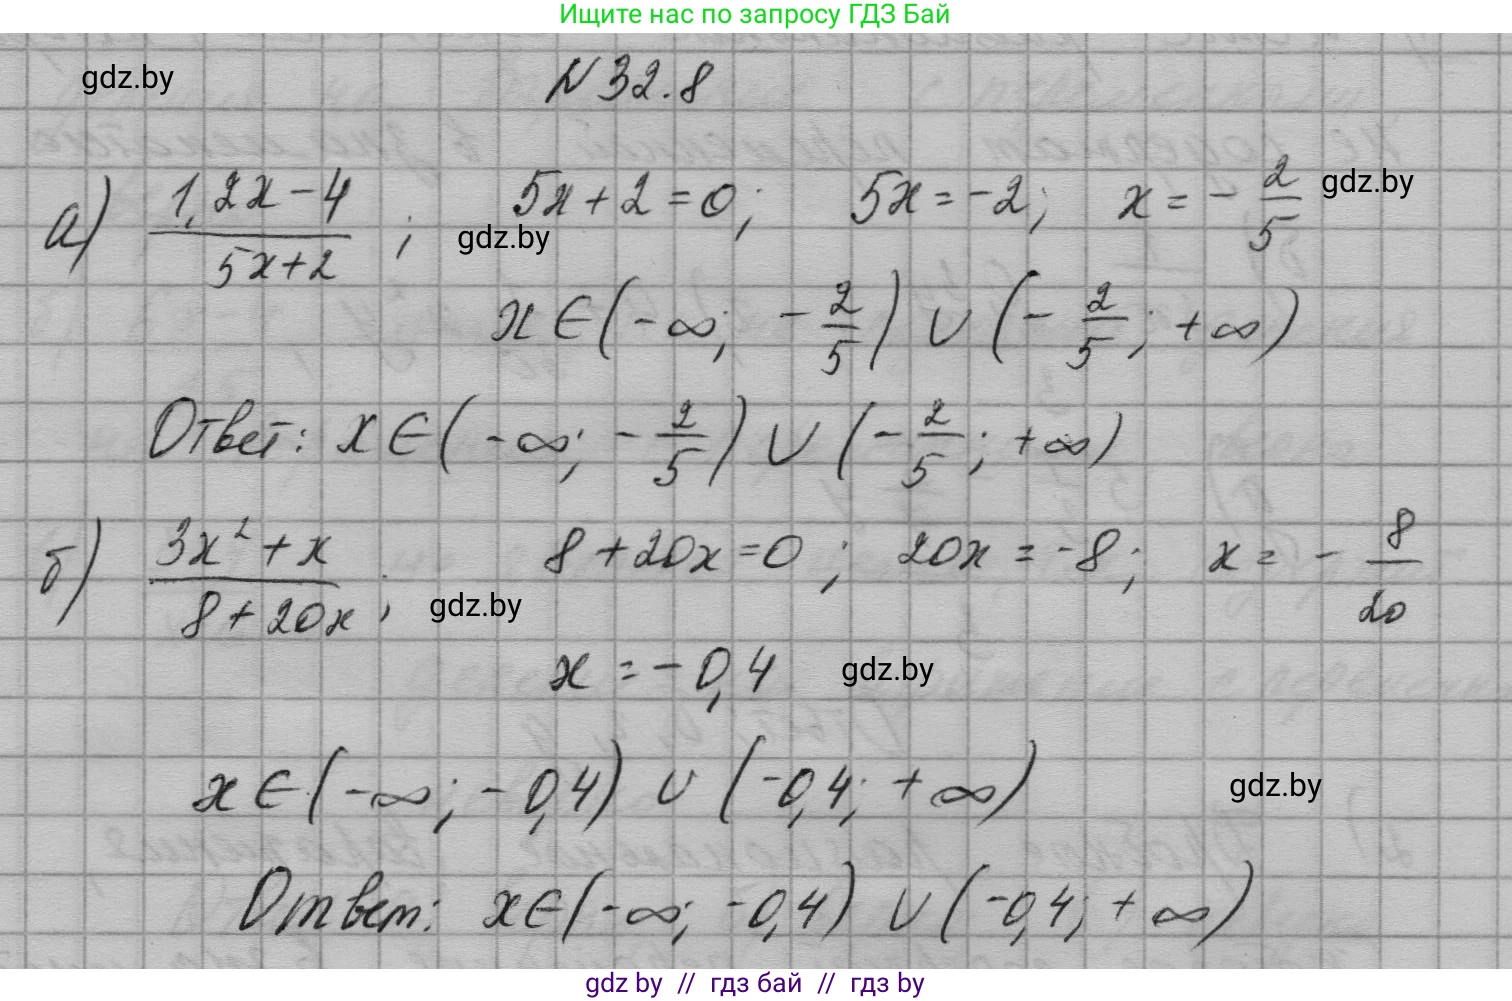 Ищите нас по запросу ГДЗ Бай
gdz.by
N 32.8
а) (1,2x-4)/(5x+2); 5x+2=0; 5x=-2; x=-2/5
gdz.by
gdz.by
x∈(-∞; -2/5)∪(-2/5; +∞)
Ответ: x∈(-∞; -2/5)∪(-2/5; +∞)
б) (3x²+x)/(8+20x); 8+20x=0; 20x=-8; x=-8/20
gdz.by
x=-0,4
gdz.by
x∈(-∞; -0,4)∪(-0,4; +∞)
gdz.by
Ответ: x∈(-∞; -0,4)∪(-0,4; +∞)
gdz by // гдз бай // гдз by